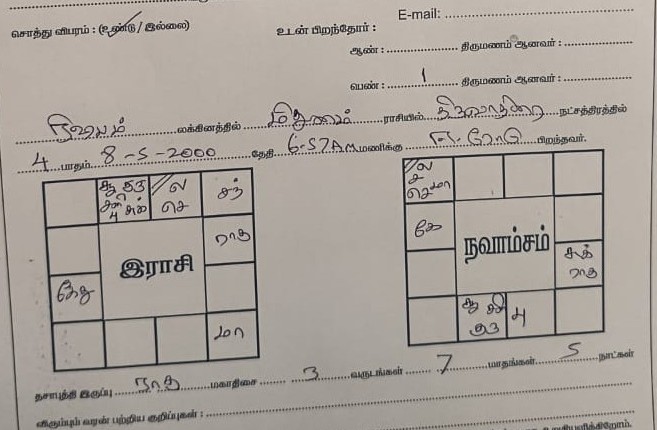 சொத்து விபரம் : (உண்டு / இல்லை)
உடன் பிறந்தோர் :
E-mail:
ஆண் : திருமணம் ஆனவர் :
பெண் : 1 திருமணம் ஆனவர் :
ரிஷபம் லக்கினத்தில் மிதுனம் ராசியில் திருவாதிரை நட்சத்திரத்தில்
4 பாதம் 8-5-2000 தேதி 6-57AM மணிக்கு ஈரோடு பிறந்தவர்.
சூ குரு
சனி சுக்
பு
ல
செ
சந்
ராகு
இராசி
கேது
மா
ல
ச
செ மா
கே
நவாம்சம்
சுக்
ராகு
சூ சனி
குரு
பு
தசாபுத்தி இருப்பு ராகு மகாதிசை 3 வருடங்கள் 7 மாதங்கள் 5 நாட்கள்
விரும்பும் வரன் பற்றிய குறிப்புகள் :